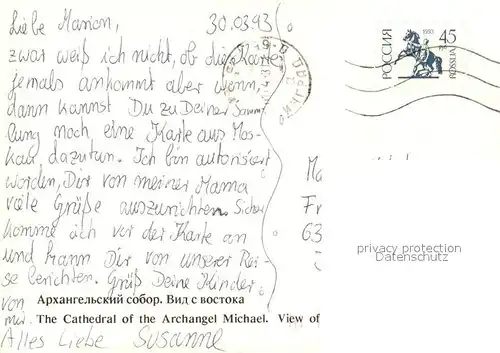 Liebe Marion, 30.03.93
zwar weiß ich nicht, ob die Karte
jemals ankommt aber wenn,
dann kannst Du zu Deiner Samm
lung noch eine Karte aus Mos-
kau dazutun. Ich bin autorisiert
worden, Dir von meiner Mama
viele Grüße auszurichten. Sicher
komme ich vor der Karte an
und kann Dir von unserer Rei-
se berichten. Grüß Deine Kinder
von
mir.
Alles Liebe Susanne
Архангельский собор. Вид с востока
The Cathedral of the Archangel Michael. View of
РОССИЯ 1993 45 ROSSIJA
Ma
Fr
63
privacy protection
Datenschutz